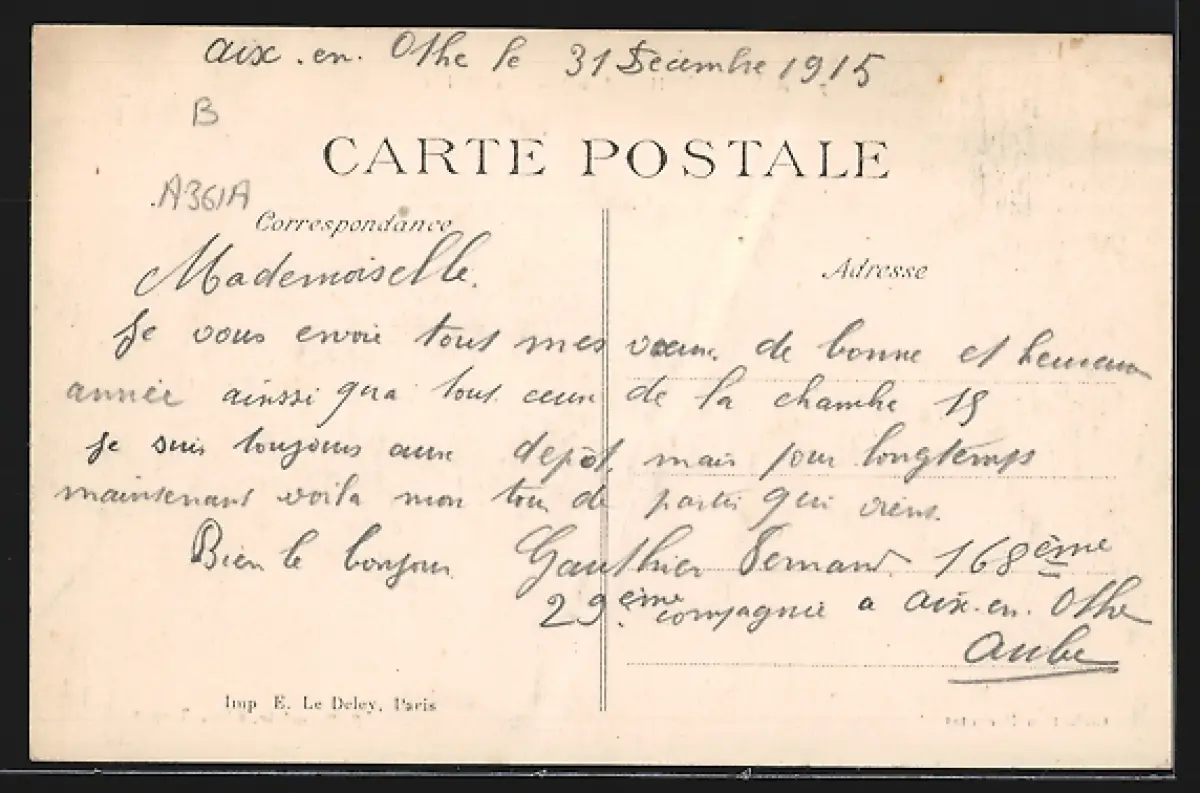 aix. en. Othe le 31 Décembre 1915
B
CARTE POSTALE
A361A
Correspondance
Adresse
Mademoiselle.
Je vous envoie tout mes vœux de bonne et heureuse
année ainsi qua tous ceux de la chambre 15
Je suis toujours aux depôt, mais pour longtemps
maintenant voila mon tour de partir qui viens.
Bien le bonjour Gauthier Fernand. 168ème
29ème compagnie a aix. en. Othe
Aube
Imp E. Le Deley, Paris